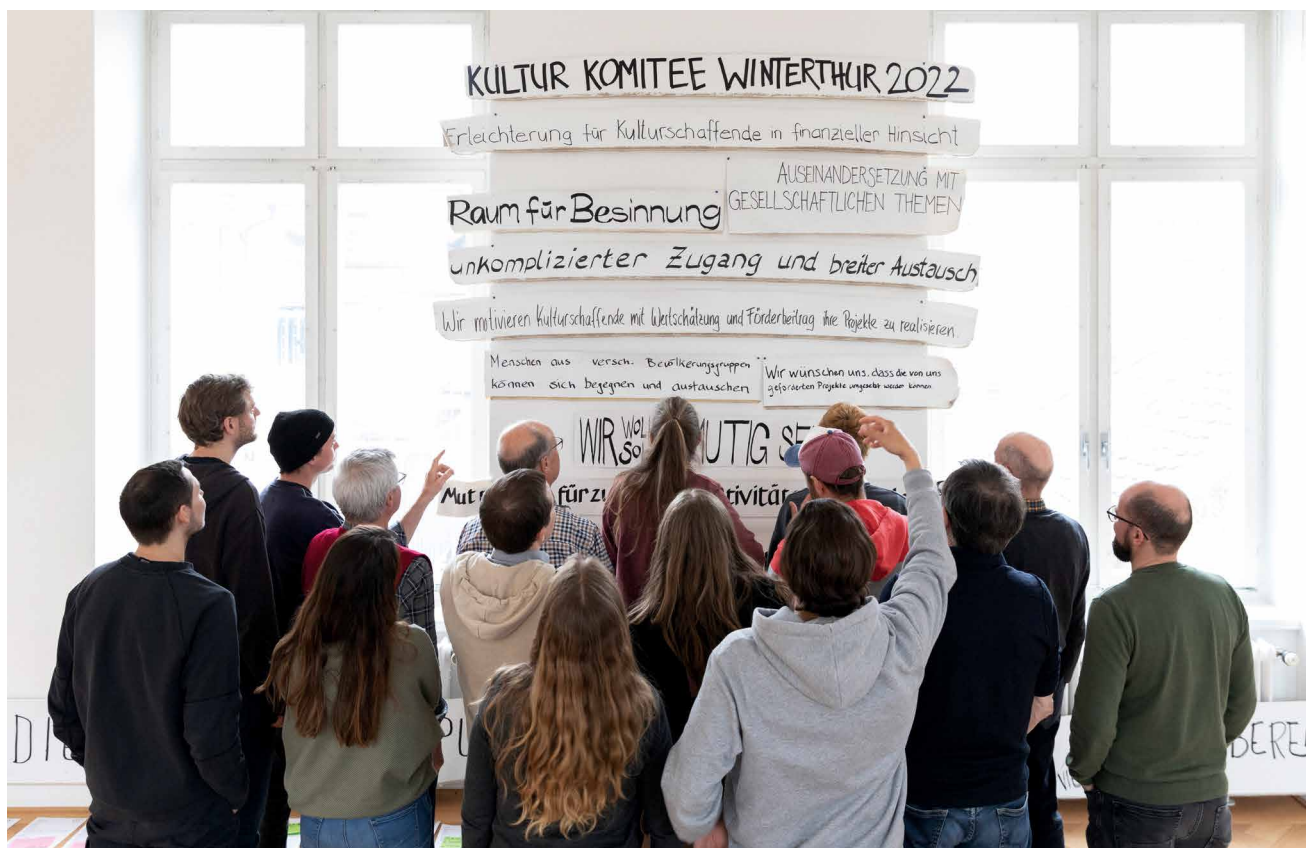 KULTUR KOMITEE WINTERTHUR 2022
Erleichterung für Kulturschaffende in finanzieller Hinsicht
Raum für Besinnung
AUSEINANDERSETZUNG MIT
GESELLSCHAFTLICHEN THEMEN
unkomplizierter Zugang und breiter Austausch
Wir motivieren Kulturschaffende mit Wertschätzung und Förderbeitrag ihre Projekte zu realisieren.
Menschen aus versch. Bevölkerungsgruppen
können sich begegnen und austauschen
Wir wünschen uns, dass die von uns
geförderten Projekte umgesetzt werden können.
WIR MUTIG
Mut